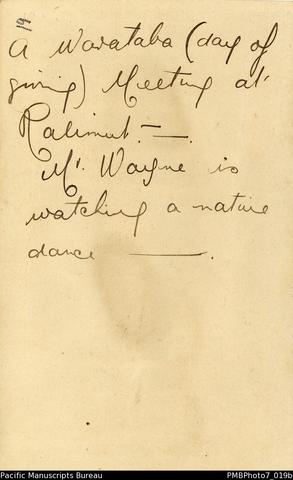 19
A Warataba (day of
giving) Meeting at
Ralimut. — .
Mr. Wayne is
watching a native
dance — .
Pacific Manuscripts Bureau
PMBPhoto7_019b